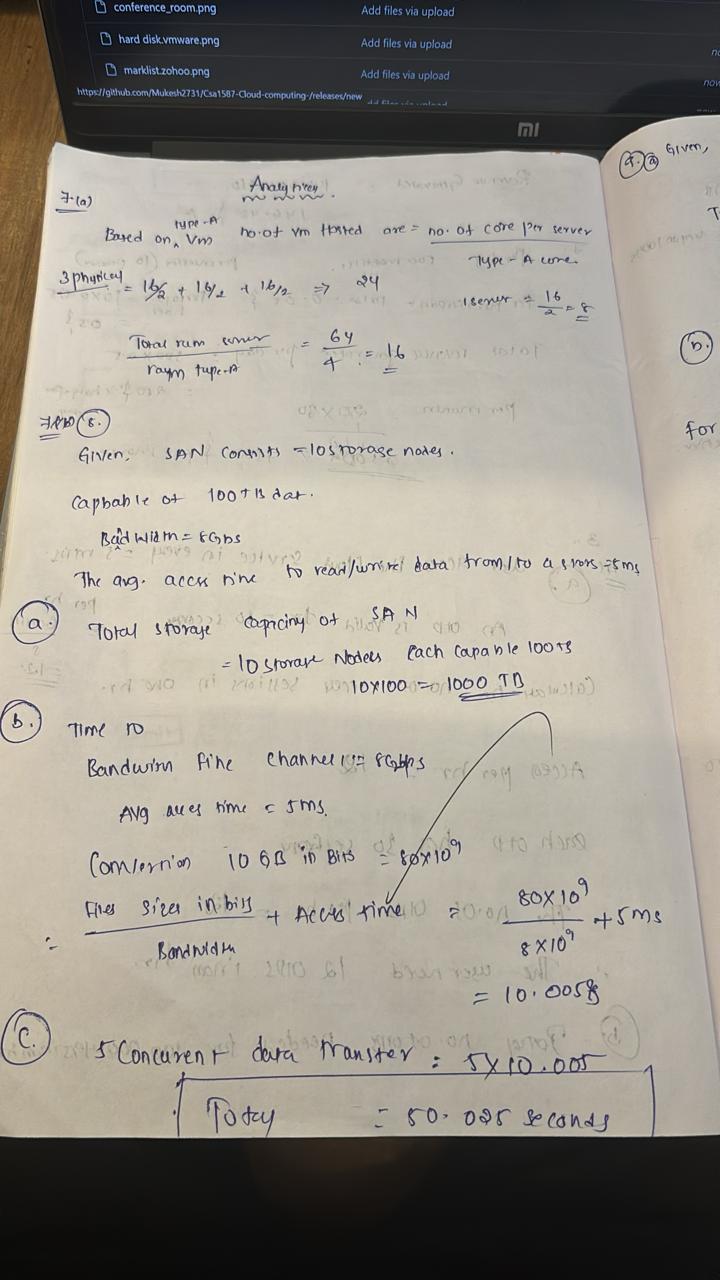 conference_room.png Add files via upload
hard disk.vmware.png Add files via upload
marklist.zoho.png Add files via upload
https://github.com/Mukesh2731/Csa1587-Cloud-computing-/releases/new
mi
7.(a)
Based on type-A Vm no.of vm Hosted are = no. of core per server
Type-A core.
3 physical = 16/2 + 16/2 + 16/2 ⇒ 24
1 server = 16/2 = 8
Total ram server = 64 = 16
raym type-A 4
8.
Given: SAN consists = 10 storage nodes.
Capbable of 100 TB dat.
Badwidth = 8Gbps
The avg. accss time to read/write data from/to a = 5ms
a. Total storage capacity of SAN
= 10 storage Nodes Each capable 100TB
10x100 = 1000 TB
b. Time to
Bandwidth Fibre channel = 8Gbps
Avg acces time = 5ms.
Conversion 10 GB in Bits = 80x10⁹
Files sizes in bits + Access time = 80x10⁹ + 5ms
Bandwidth 8x10⁹
= 10.005
C. 5 Concurent data transfer = 5x10.005
= 50.025 seconds
4. a Given,
b.
for